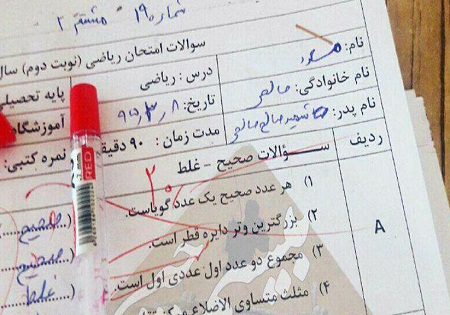 شماره ۱۹۰ مشتق ۲
سوالات امتحان ریاضی (نوبت دوم) سال
نام:
درس : ریاضی
پایه تحصیلی
نام خانوادگی: صالحی
تاریخ: ۹۵,۳,۸
آموزشگاه
نام پدر: شهید صالح صالحی
مدت زمان : ۹۰ دقیقه
نمره کتبی:
ردیف
سؤالات صحیح - غلط
۲۰
۱) هر عدد صحیح یک عدد گویاست. (....صحیح
۲) بزرگترین وتر دایره قطر است. (....صحیح
۳) مجموع دو عدد اول عددی اول است. (....غلط
۴) مثلث متساوی الاضلاع مرکز
A
RED